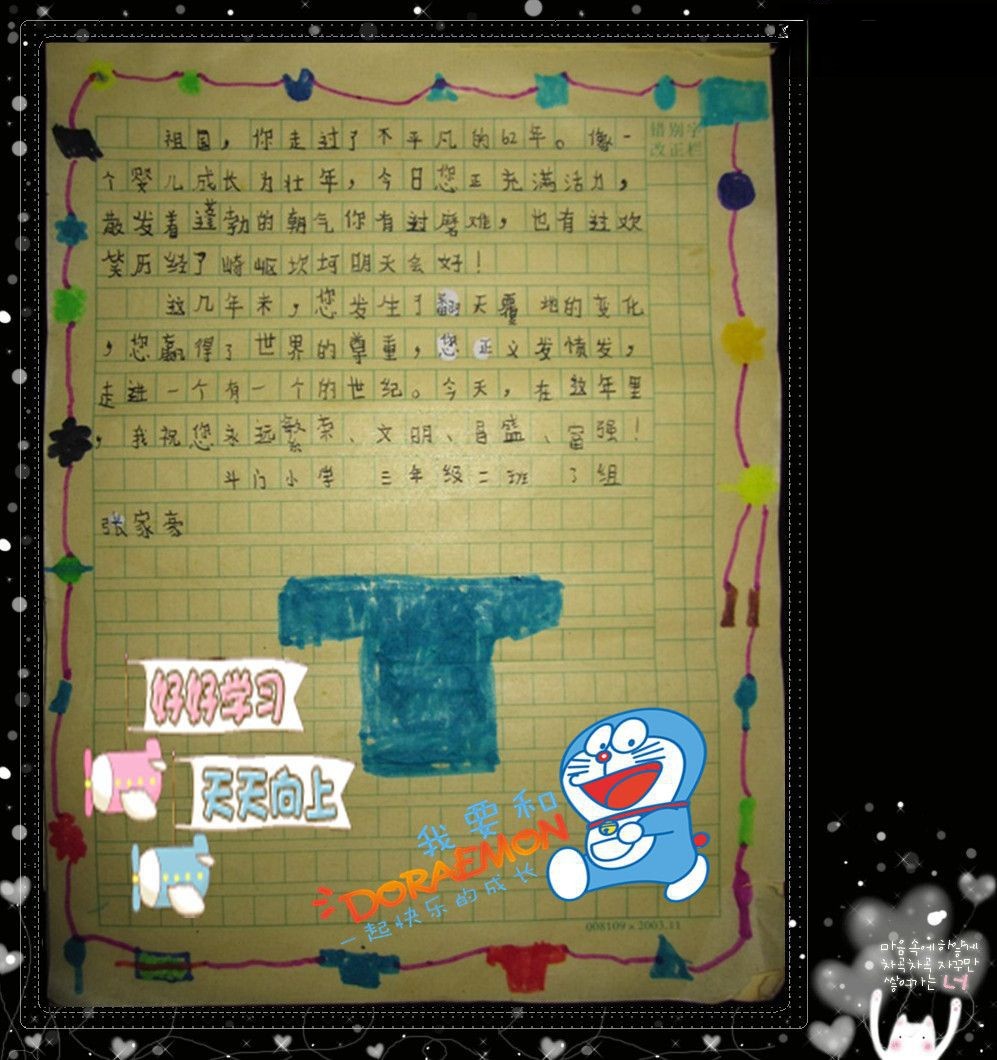 祖国，你走过了不平凡的62年。像一
个婴儿成长为壮年，今日您正充满活力，
散发着蓬勃的朝气你有过磨难，也有过欢
笑历经了崎岖坎坷明天会好！
这几年来，您发生了翻天覆地的变化
，您赢得了世界的尊重，您正义发愤发，
走进一个有一个的世纪。今天，在这年里
，我祝您永远繁荣、文明、昌盛、富强！
斗门小学 三年级二班 3组
张家豪
错别字
改正栏
好好学习
天天向上
我要和
DORAEMON
一起快乐的成长
008109×2003.11
마음속에 하얗게
차곡차곡 자꾸만
쌓여가는 너